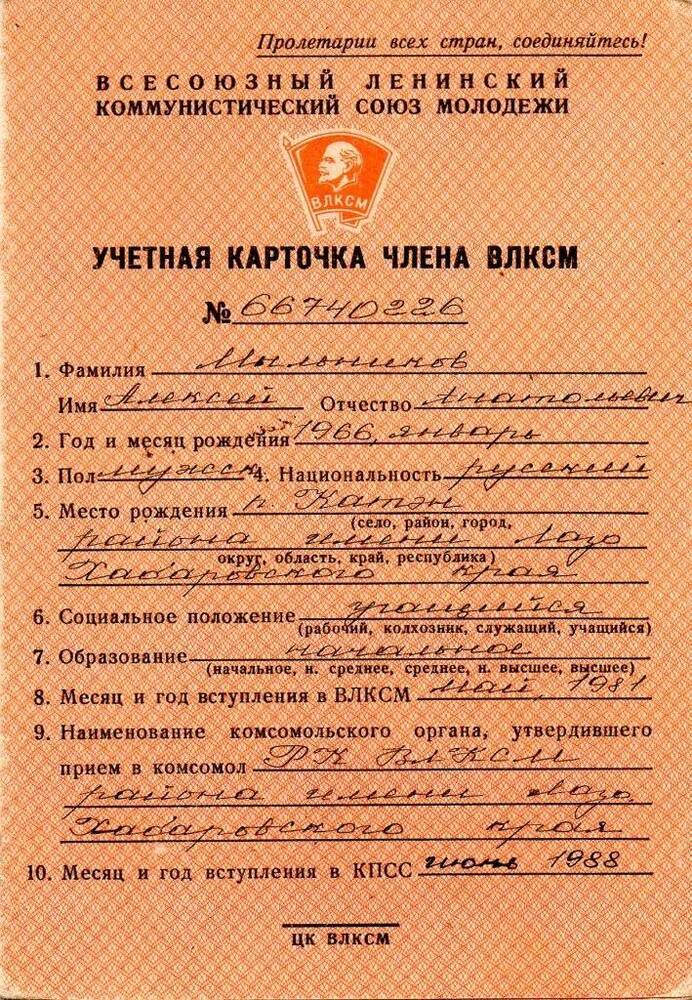 Пролетарии всех стран, соединяйтесь!
ВСЕСОЮЗНЫЙ ЛЕНИНСКИЙ
КОММУНИСТИЧЕСКИЙ СОЮЗ МОЛОДЕЖИ
ВЛКСМ
УЧЕТНАЯ КАРТОЧКА ЧЛЕНА ВЛКСМ
№ 66740226
1. Фамилия Мыльников
Имя Алексей Отчество Анатольевич
2. Год и месяц рождения 1966, январь
3. Пол мужск 4. Национальность русский
5. Место рождения п. Катэн
(село, район, город,
района имени Лазо
округ, область, край, республика)
Хабаровского края
6. Социальное положение учащийся
(рабочий, колхозник, служащий, учащийся)
7. Образование начальное
(начальное, н. среднее, среднее, н. высшее, высшее)
8. Месяц и год вступления в ВЛКСМ май, 1981
9. Наименование комсомольского органа, утвердившего
прием в комсомол РК ВЛКСМ
района имени Лазо
Хабаровского края
10. Месяц и год вступления в КПСС июнь 1988
ЦК ВЛКСМ